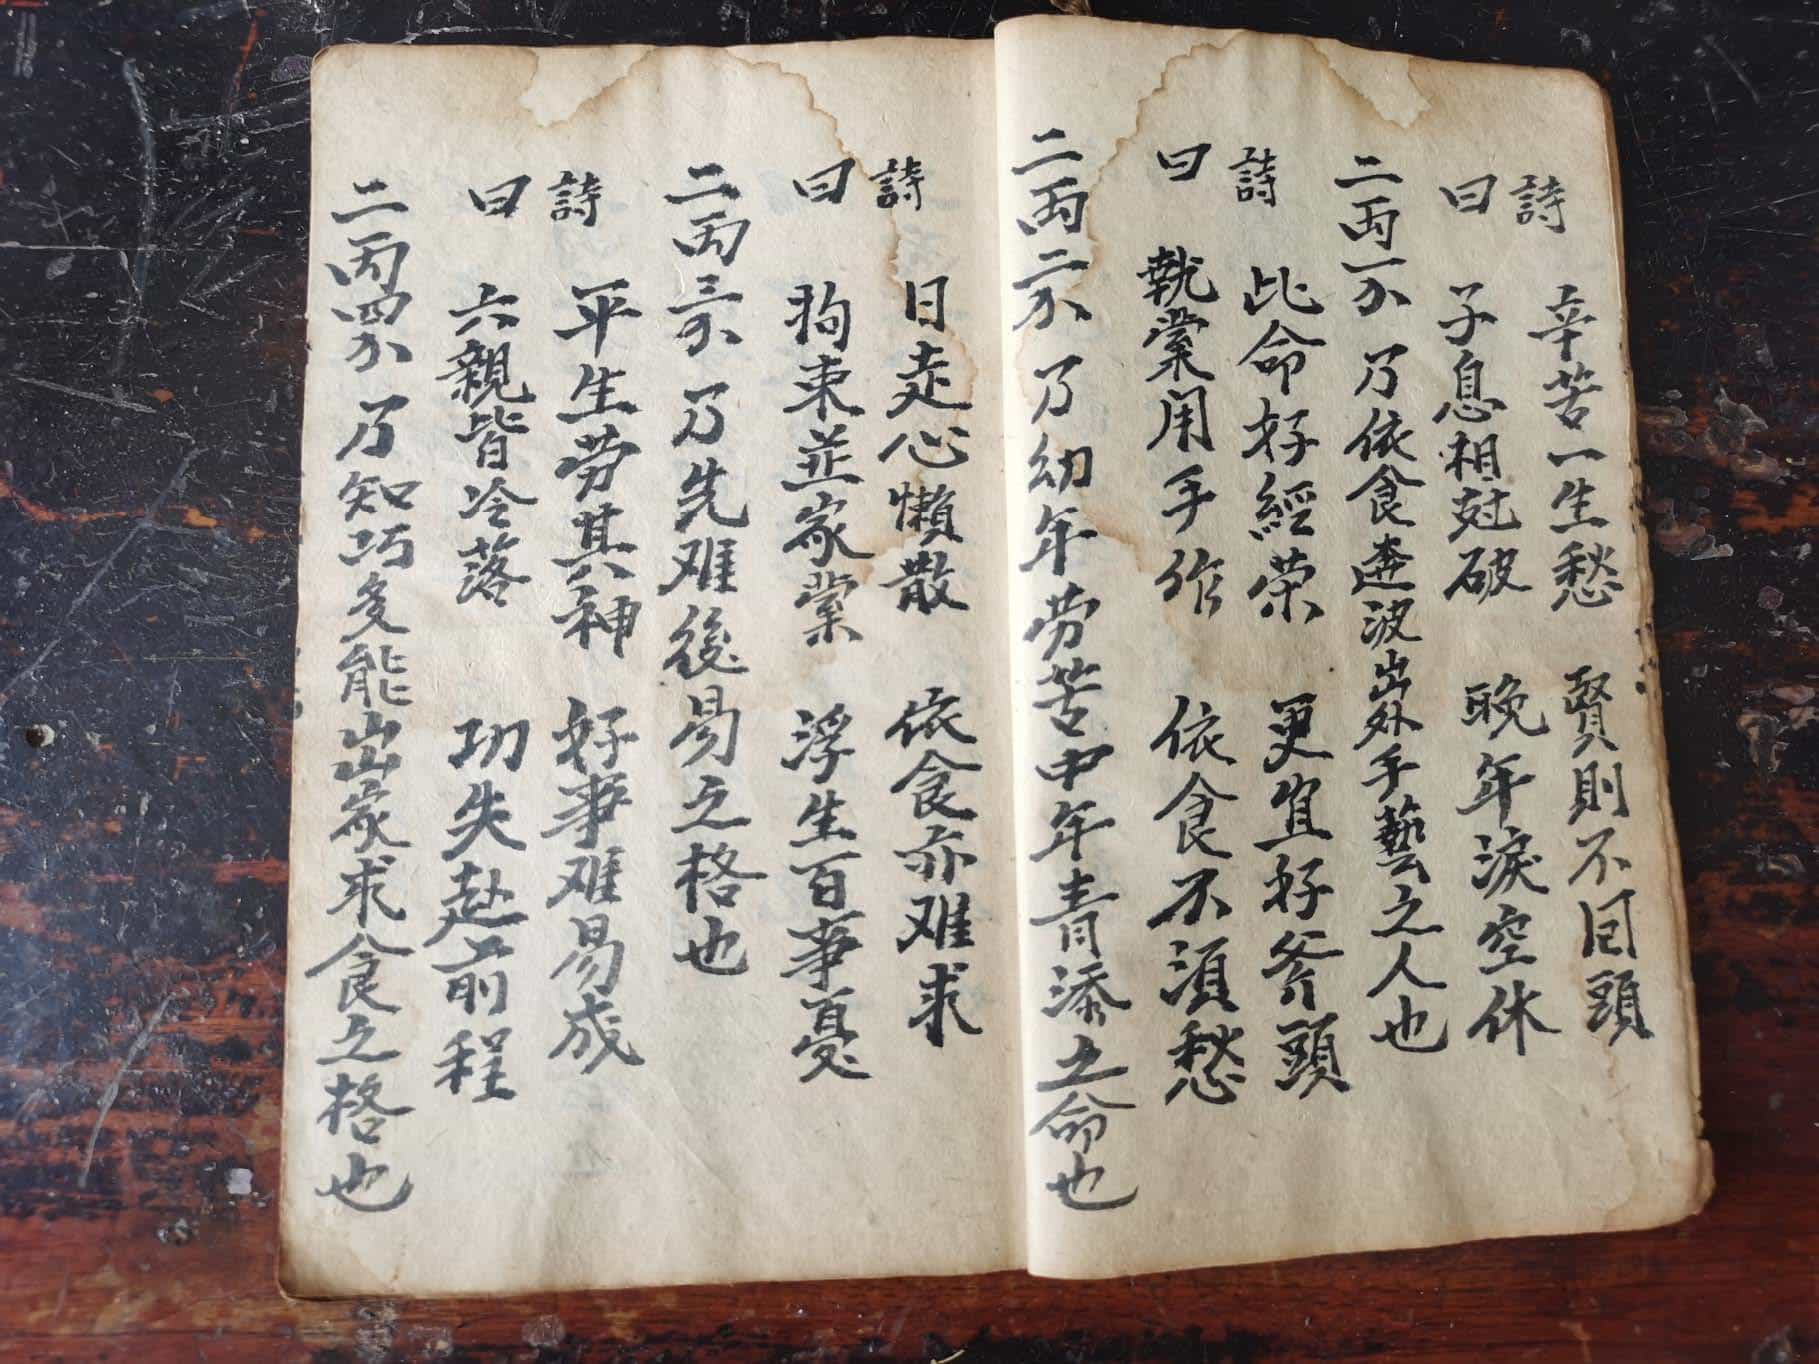 詩 辛苦一生愁 賢則不回頭
曰 子息相尅破 晚年淚空休
二両一分 乃依食奔波出外手藝之人也
詩 此命好經荣 更宜好斧頭
曰 執業用手作 依食不須愁
二両二分 乃幼年劳苦中年青添之命也
詩 日走心懶散 依食亦难求
曰 拘束並家業 浮生百事憂
二両三分 乃先难後易之格也
詩 平生劳其神 好事难易成
曰 六親皆冷落 功失赴前程
二両四分 乃知巧多能出家求食之格也